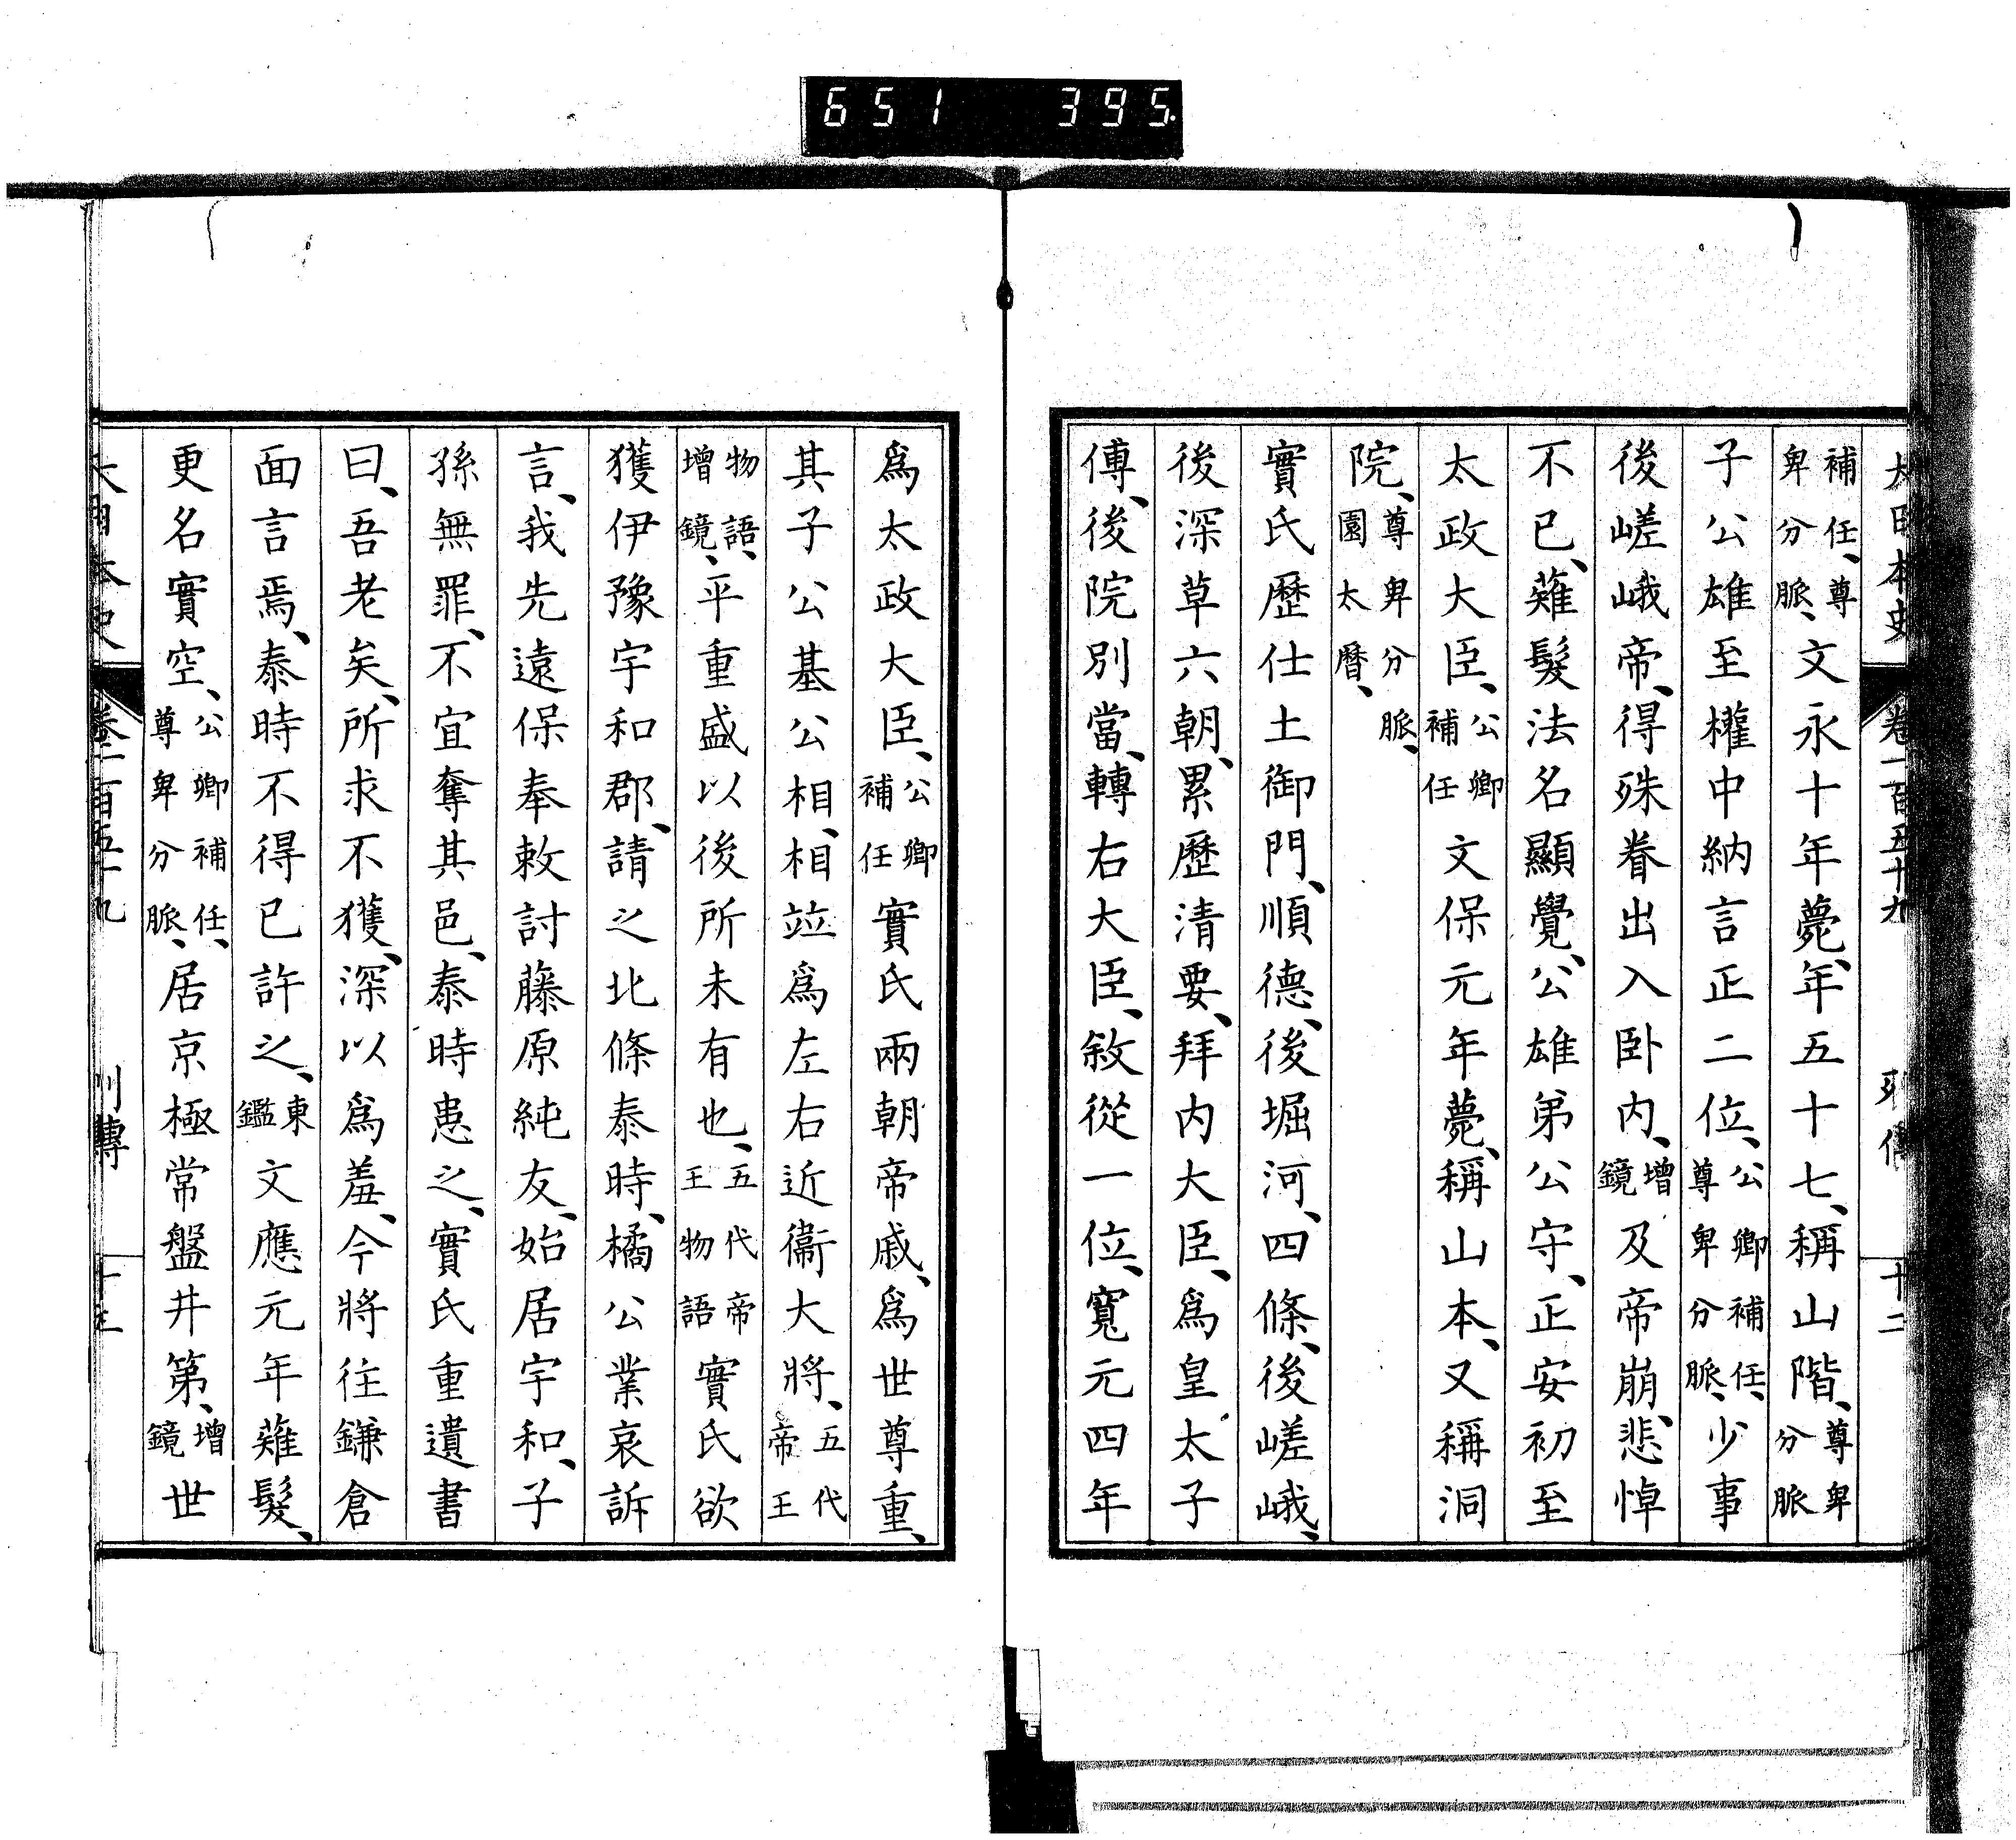 651 395
大日本史 卷一百五十九 列傳 十二
補任、尊卑分脈、文永十年薨、年五十七、稱山階、尊卑分脈
子公雄至權中納言正二位、公卿補任、尊卑分脈、少事
後嵯峨帝、得殊眷出入卧内、增鏡及帝崩、悲悼
不已、薙髮法名顯覺、公雄弟公守、正安初至
太政大臣、公卿補任文保元年薨、稱山本、又稱洞
院、尊卑分脈、園太曆、
實氏歷仕土御門、順德、後堀河、四條、後嵯峨、
後深草六朝、累歷清要、拜内大臣、爲皇太子
傅、後院別當、轉右大臣、敘從一位、寬元四年
爲太政大臣、公卿補任實氏兩朝帝戚、爲世尊重、
其子公基公相、相竝爲左右近衞大將、五代帝王
物語、增鏡、平重盛以後所未有也、五代帝王物語實氏欲
獲伊豫宇和郡、請之北條泰時、橘公業哀訴
言、我先遠保奉敕討藤原純友、始居宇和、子
孫無罪、不宜奪其邑、泰時患之、實氏重遺書
曰、吾老矣、所求不獲、深以爲羞、今將往鎌倉
面言焉、泰時不得已許之、東鑑文應元年薙髮、
更名實空、公卿補任、尊卑分脈、居京極常盤井第、增鏡世
大日本史 卷一百五十九 列傳 十三